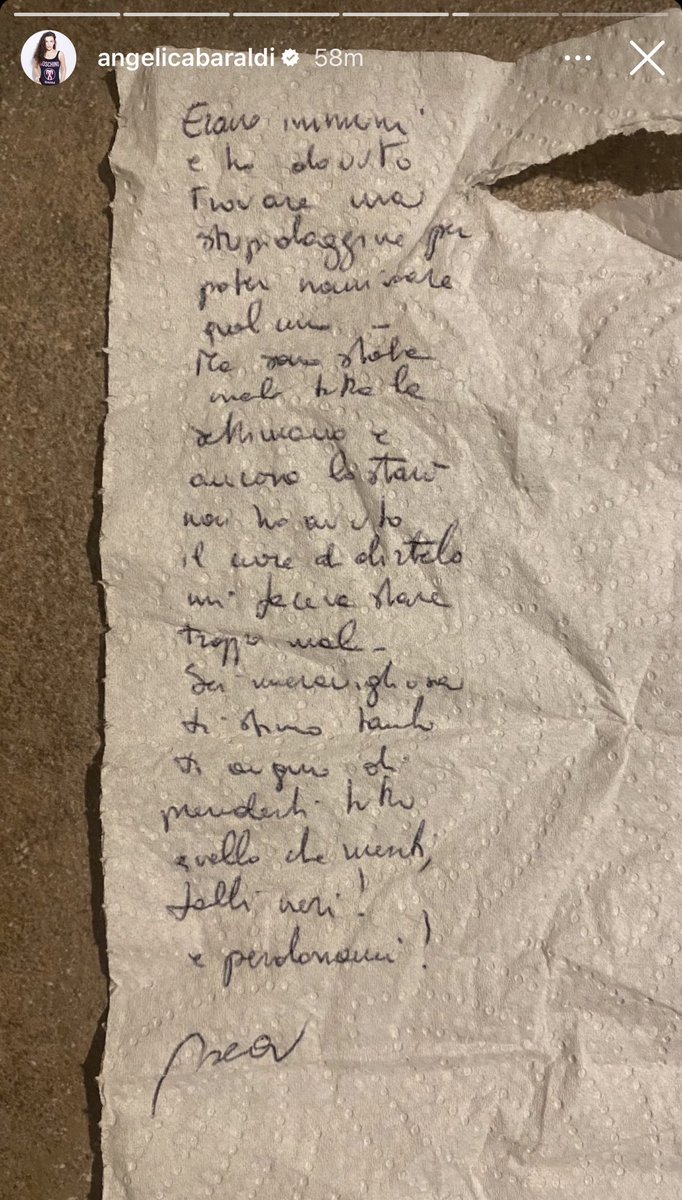 angelicabaraldi 58m
Erano immuni
e ho dovuto
trovare una
stupidaggine per
poter nominare
qualcuno -
Ma sono stata
male tutta la
settimana e
ancora lo starò
non ho avuto
il cuore di dirtelo
mi faceva stare
troppo male -
Sei meravigliosa
ti stimo tanto
ti auguro di
prenderti tutto
quello che meriti,
falli neri!
e perdonami!